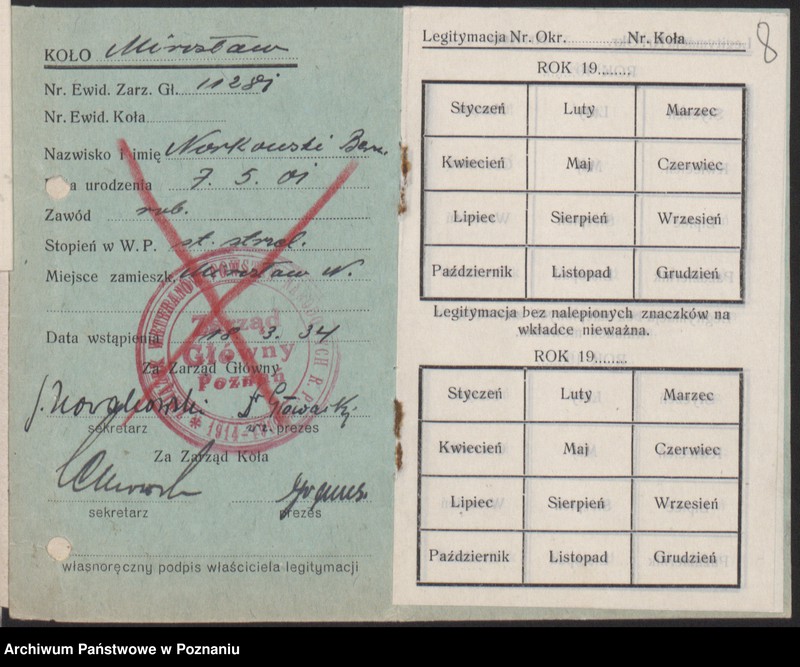 KOŁO Mirosław
Nr. Ewid. Zarz. Gł. 11281
Nr. Ewid. Koła
Nazwisko i imię Norkowski Bern.
a urodzenia 7. 5. 01
Zawód rob.
Stopień w W. P. st. strzel.
Miejsce zamieszk. Mirosław N.
Data wstąpienia 18. 3. 34
Za Zarząd Główny
sekretarz wz. prezes
Za Zarząd Koła
sekretarz prezes
własnoręczny podpis właściciela legitymacji
Zarząd
Główny
Poznań
Legitymacja Nr. Okr. Nr. Koła
8
ROK 19
Styczeń Luty Marzec
Kwiecień Maj Czerwiec
Lipiec Sierpień Wrzesień
Październik Listopad Grudzień
Legitymacja bez nalepionych znaczków na
wkładce nieważna.
ROK 19
Styczeń Luty Marzec
Kwiecień Maj Czerwiec
Lipiec Sierpień Wrzesień
Październik Listopad Grudzień
Archiwum Państwowe w Poznaniu